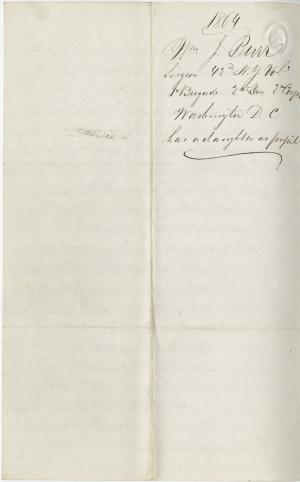 1864
Wm J. Burr
Surgeon 42d N. Y Vol
1 Brigade 2d Div 2d Corps
Washington D. C
has a daughter as pupil